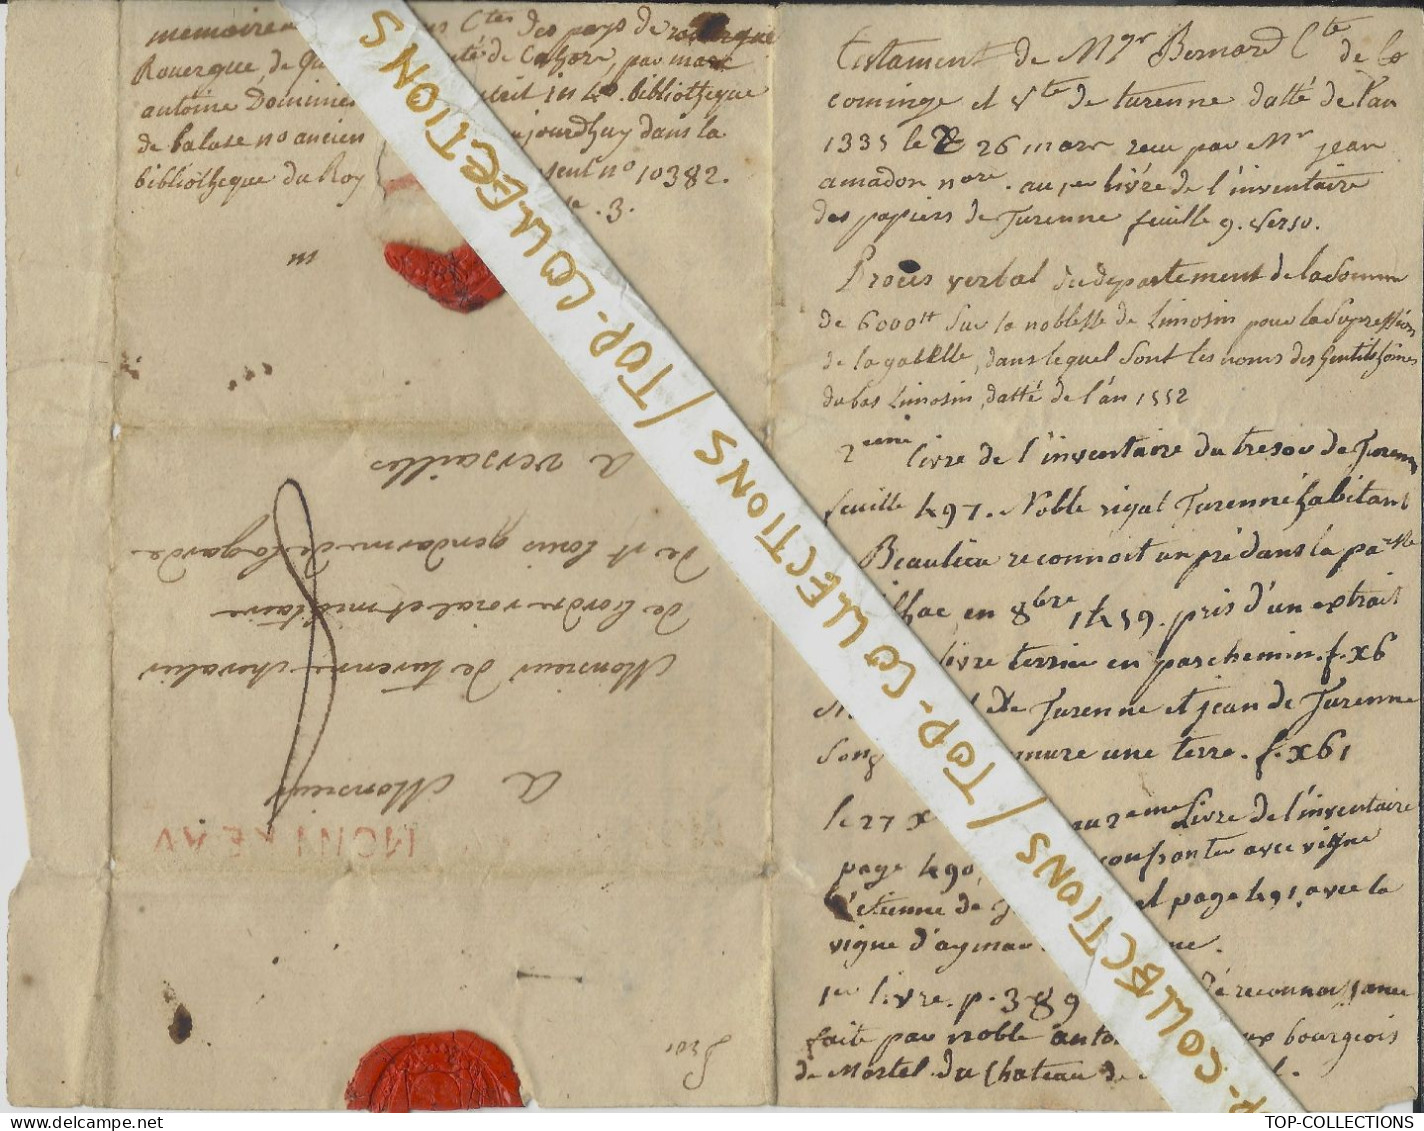 memoires Ctes des pays de rouergue
Rouergue, de té de Cahors, par marc
antoine Dominici in 4o. bibliotheque
de baluse no ancien aujourdhuy dans la
bibliotheque du Roy no 10382.
3.
m
MONTREAU
a Monsieur
Monsieur de turenne chevalier
de l'ordre roial et militaire
de st louis gendarme de la garde
a versailles
testament de Mgr Bernard Cte de
cominge et Vte de turenne datté de l'an
1335 le 26 mars recu par Mr jean
amadon nore. au 1er livre de l'inventaire
des papiers de Turenne feuille 9. verso.
Procès verbal du departement de la somme
de 6000tt sur la noblesse de Limosin pour la supression
de la gabelle, dans lequel sont les noms des gentilshômes
du bas Limosin, datté de l'an 1552
2eme livre de l'inventaire du tresor de Turenne
feuille 497. Noble rigal Turenne habitant
Beaulieu reconnoit un pré dans la parsse
lhac en 8bre 1459. pris d'un extrait
livre terrier en parchemin. f. x6
de Turenne et jean de Turenne
mure une terre. f. x61
le 27 x au 2eme livre de l'inventaire
page 490, confronte avec vigne
d'etienne de T et page 491, avec la
vigne d'aymar ne.
1er livre. p. 389 reconnoissance
faite par noble anto bourgeois
de Martel du chateau de l.
TOP-COLLECTIONS / TOP-COLLECTIONS / TOP-COLLECTIONS / TOP-COLLECTIONS
TOP-COLLECTIONS
www.delcampe.net